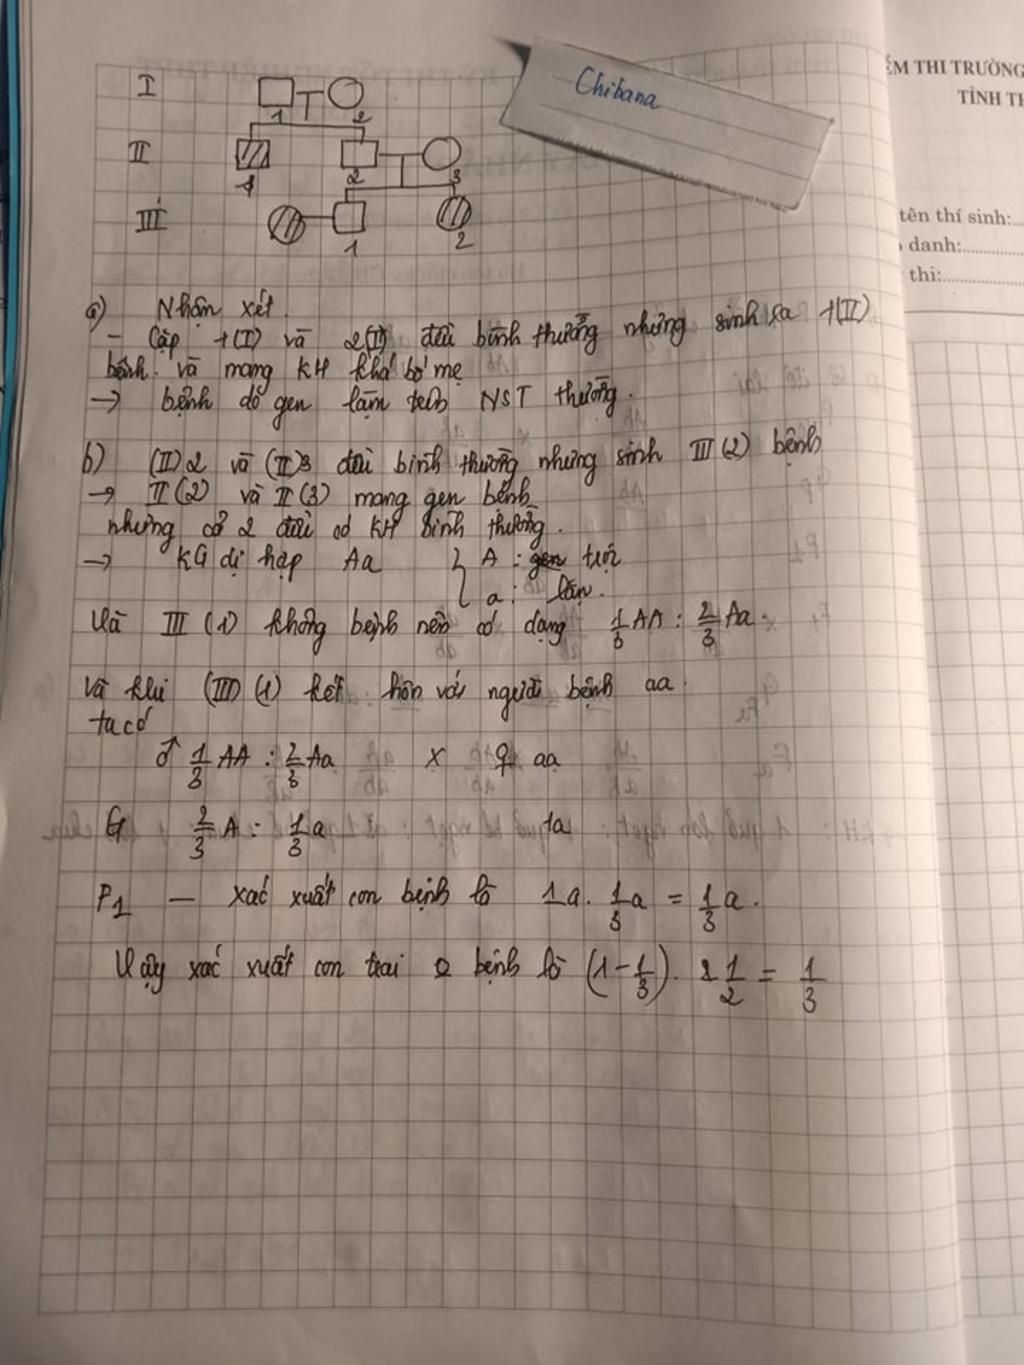 I
1 2
Chibana
II
1 2 3
III
1 2
ĐIỂM THI TRƯỜNG
TỈNH TH
tên thí sinh:
danh:
thi:
a) Nhận xét.
- Cặp 1(I) và 2(I) đều bình thường nhưng sinh ra 1(II)
bệnh. và mang KH khá bố mẹ
→ bệnh do gen lặn trên NST thường.
b) (II)2 và (II)3 đều bình thường nhưng sinh III(2) bệnh
→ II(2) và II(3) mang gen bệnh
nhưng cả 2 đều có KH bình thường.
→ KG dị hợp Aa { A : gen trội
a : lặn.
Và III (1) không bệnh nên có dạng 1/3 AA : 2/3 Aa.
Và khi (III) (1) kết hôn với người bệnh aa.
ta có
♂ 1/3 AA : 2/3 Aa x ♀ aa
G 2/3 A : 1/3 a 1a
P1 — xác xuất con bệnh là 1a. 1/3 a = 1/3 a.
Vậy xác xuất con trai bệnh là (1 - 1/3). 1/2 = 1/3